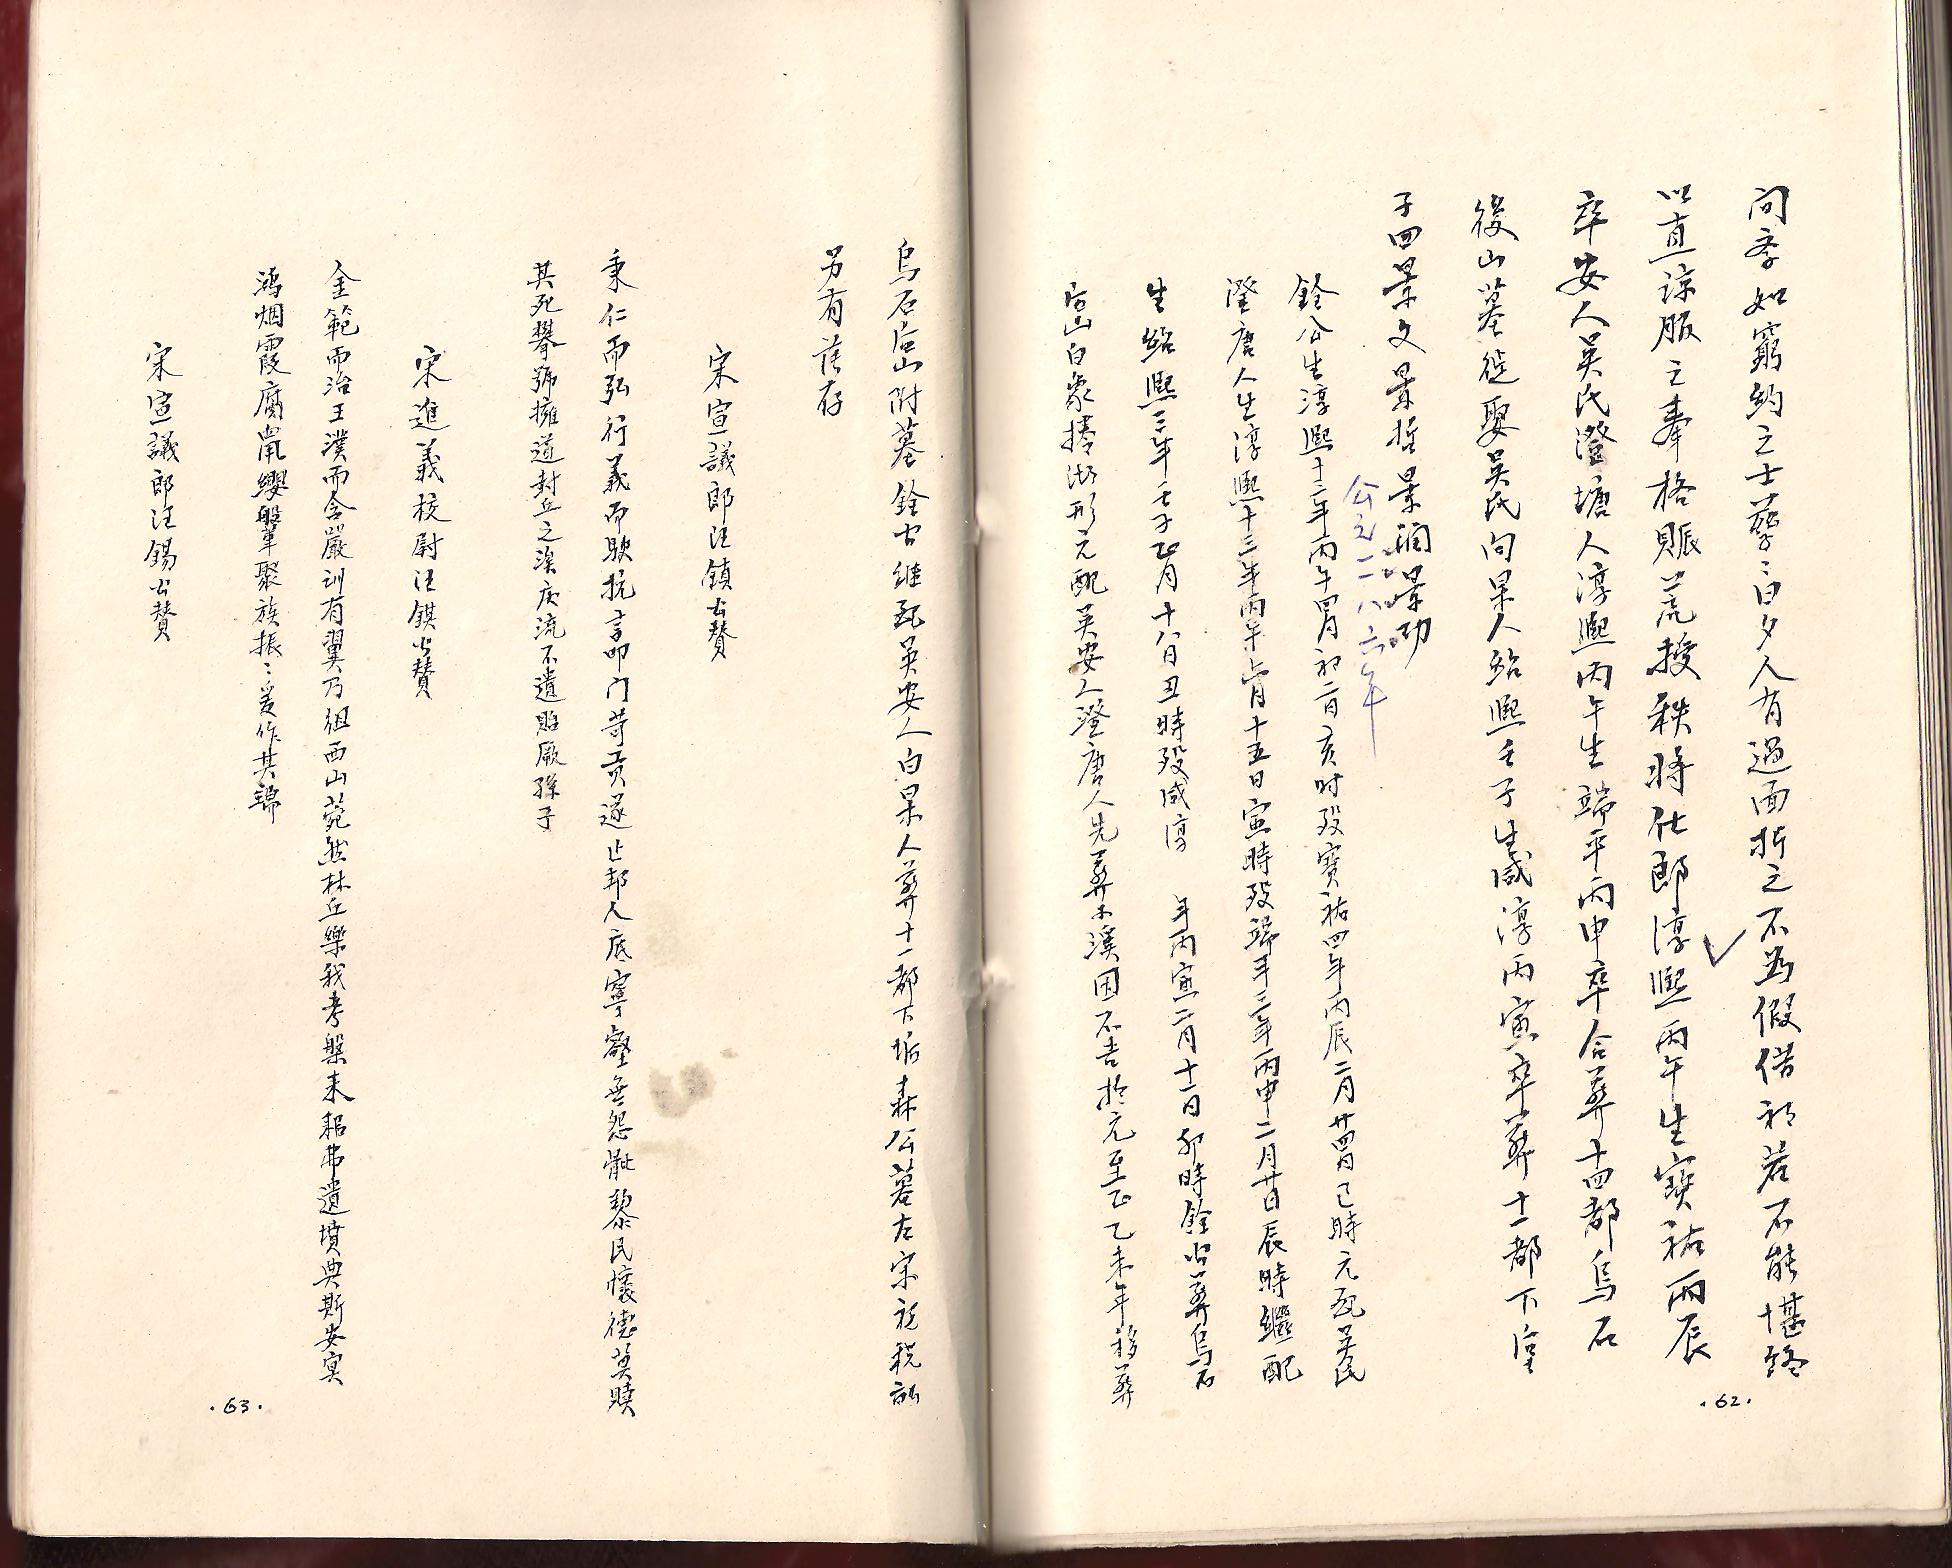 问季如窮約之士藹藹白夕人有過面折之不為假借初若不能堪終
以直諒服之奉格賑荒授秩將仕郎淳熙丙午生寶祐丙辰
卒安人吴氏澄塘人淳熙丙午生端平丙申卒合葬十四都烏石
後山墓継娶吴氏向杲人紹熙壬子生咸淳丙寅卒葬十一都下
子四景文景哲景润景功
公元一一八六年
銓公生淳熙十三年丙午四月初二日亥时殁寶祐四年丙辰二月廿四日巳時元配吴氏
澄唐人生淳熙十三年丙午六月十五日寅時殁端平三年丙申二月廿日辰時繼配
生紹熙三年壬子正月十八日丑時殁咸淳 年丙寅二月十一日卯時銓公葬烏石
后山白象捲湖形元配吴安人澄唐人先葬小溪因不吉於元至正乙未年移葬
·62·
烏石后山附墓銓公継配吴安人白杲人葬十一都下垢森公墓左宋祀税訟
另有
存
宋宣議郎汪鎮公贊
秉仁而弘行義而駛抗言叩门苛贡遂止邦人底寧壑無怨骴黎民懷德莫贖
其死攀號擁道封丘之涘庆流不遺貽厥孫子
宋進義校尉汪錤公贊
金範而治王濮而含嚴训有翼乃徂西山菀然林丘樂我考槃耒耜弗遺墳典斯安寘
鴻烟霞腐鼠纓鞶聚族振振爰作其歸
宋宣議郎汪錫公贊
·63·